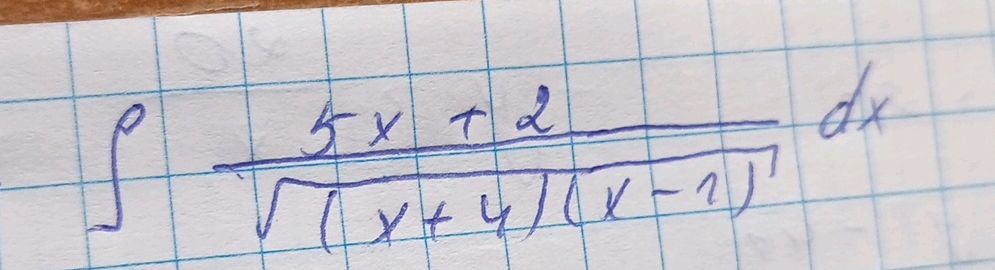 ∫ (5x + 2) / √((x + 4)(x - 1)) dx